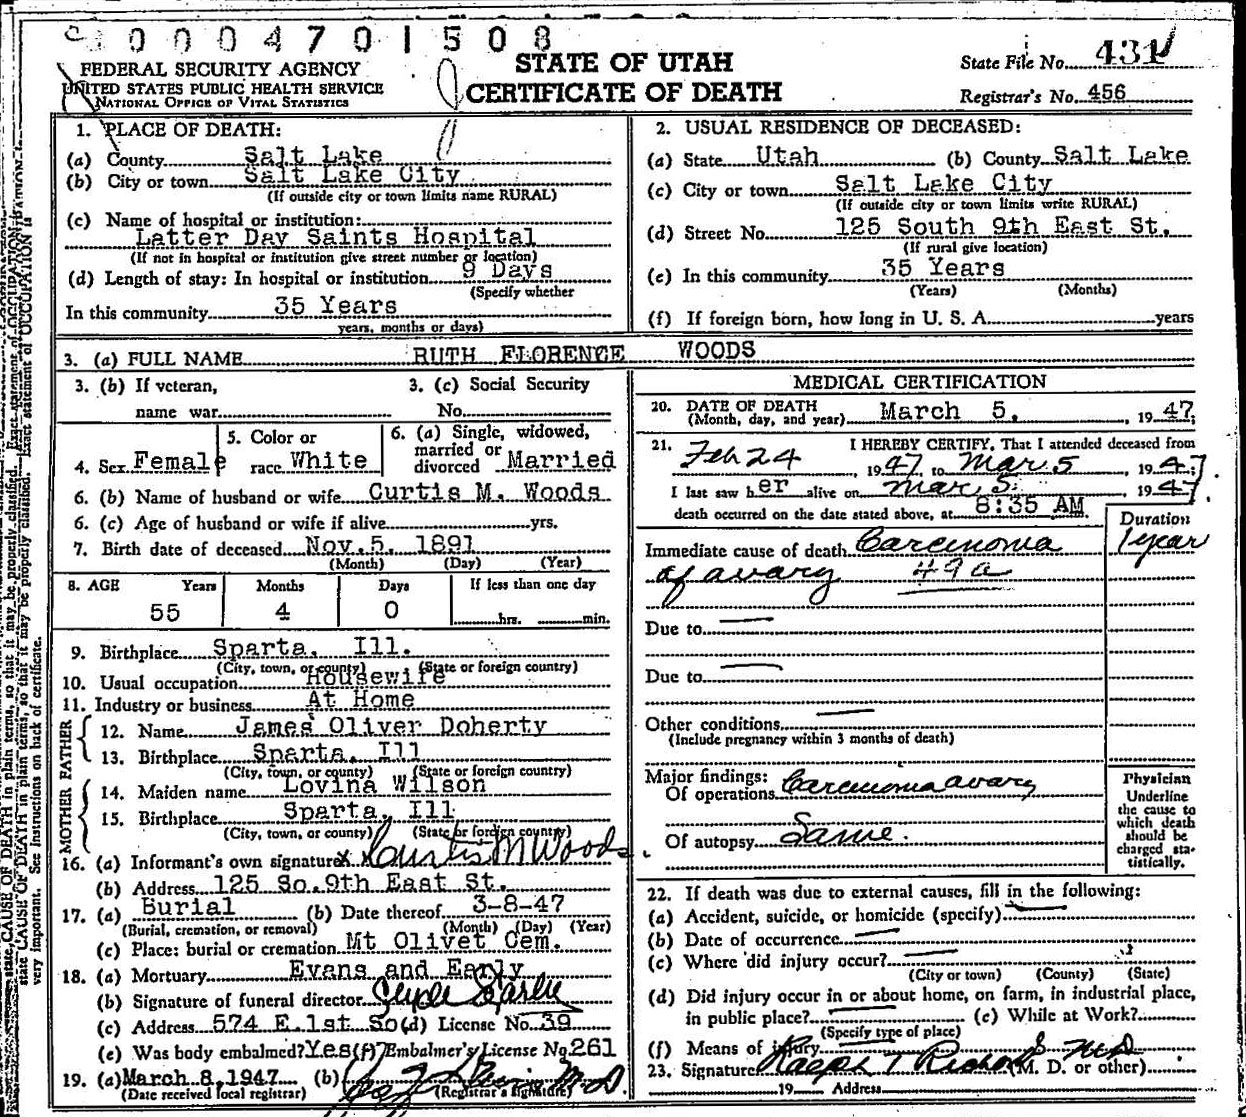 0 0 0 4 7 0 1 5 0 8
FEDERAL SECURITY AGENCY
UNITED STATES PUBLIC HEALTH SERVICE
NATIONAL OFFICE OF VITAL STATISTICS
STATE OF UTAH
CERTIFICATE OF DEATH
State File No. 431
Registrar's No. 456
1. PLACE OF DEATH:
(a) County Salt Lake
(b) City or town Salt Lake City
(If outside city or town limits name RURAL)
(c) Name of hospital or institution:
Latter Day Saints Hospital
(If not in hospital or institution give street number or location)
(d) Length of stay: In hospital or institution 9 Days
(Specify whether
In this community 35 Years
years, months or days)
2. USUAL RESIDENCE OF DECEASED:
(a) State Utah (b) County Salt Lake
(c) City or town Salt Lake City
(If outside city or town limits write RURAL)
(d) Street No. 125 South 9th East St.
(If rural give location)
(e) In this community 35 Years
(Years) (Months)
(f) If foreign born, how long in U. S. A. years
3. (a) FULL NAME RUTH FLORENCE WOODS
3. (b) If veteran,
name war
3. (c) Social Security
No.
4. Sex Female
5. Color or
race White
6. (a) Single, widowed,
married or
divorced Married
6. (b) Name of husband or wife Curtis M. Woods
6. (c) Age of husband or wife if alive yrs.
7. Birth date of deceased Nov. 5, 1891
(Month) (Day) (Year)
8. AGE Years Months Days If less than one day
55 4 0 hrs. min.
9. Birthplace Sparta, Ill.
(City, town, or county) (State or foreign country)
10. Usual occupation Housewife
11. Industry or business At Home
FATHER
12. Name James Oliver Doherty
13. Birthplace Sparta, Ill
(City, town, or county) (State or foreign country)
MOTHER
14. Maiden name Lovina Wilson
15. Birthplace Sparta, Ill
(City, town, or county) (State or foreign country)
16. (a) Informant's own signature x Curtis M Woods
(b) Address 125 So. 9th East St.
17. (a) Burial (b) Date thereof 3-8-47
(Burial, cremation, or removal) (Month) (Day) (Year)
(c) Place: burial or cremation Mt Olivet Cem.
18. (a) Mortuary Evans and Early
(b) Signature of funeral director
(c) Address 574 E. 1st So (d) License No. 39
(e) Was body embalmed? Yes (f) Embalmer's License No. 261
19. (a) March 8, 1947 (b) M.D.
(Date received local registrar) (Registrar's signature)
MEDICAL CERTIFICATION
20. DATE OF DEATH
(Month, day, and year) March 5, 1947
21. I HEREBY CERTIFY, That I attended deceased from
Feb 24, 1947, to Mar. 5, 1947.
I last saw her alive on Mar. 5, 1947.
death occurred on the date stated above, at 8:35 AM.
Duration
Immediate cause of death Carcinoma 1 year
of avary 49a
Due to —
Due to —
Other conditions —
(Include pregnancy within 3 months of death)
Major findings:
Of operations Carcinoma avary
Of autopsy Same.
Physician
Underline
the cause to
which death
should be
charged sta-
tistically.
22. If death was due to external causes, fill in the following:
(a) Accident, suicide, or homicide (specify) —
(b) Date of occurrence —
(c) Where did injury occur? —
(City or town) (County) (State)
(d) Did injury occur in or about home, on farm, in industrial place,
in public place? — (e) While at Work?
(Specify type of place)
(f) Means of injury —
23. Signature Ralph T Richards M.D (M. D. or other)
19 Address
state CAUSE OF DEATH in plain terms, so that it may be properly classified. Exact statement of OCCUPATION is
very important. See instructions on back of certificate.